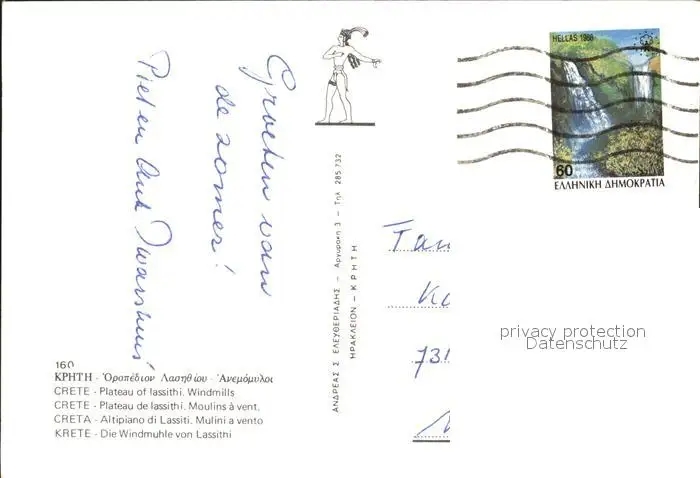 Groeten van
de zomer!
Piet en
160
ΚΡΗΤΗ - Ὀροπέδιον Λασηθίου - Ἀνεμόμυλοι
CRETE - Plateau of lassithi. Windmills
CRETE - Plateau de lassithi. Moulins à vent.
CRETA - Altipiano di Lassiti. Mulini a vento
KRETE - Die Windmuhle von Lassithi
ΑΝΔΡΕΑΣ Σ. ΕΛΕΥΘΕΡΙΑΔΗΣ — Αργυράκη 3 — Τηλ. 285.732
ΗΡΑΚΛΕΙΟΝ — ΚΡΗΤΗ
HELLAS 1988
60
ΕΛΛΗΝΙΚΗ ΔΗΜΟΚΡΑΤΙΑ
Fam
731
privacy protection
Datenschutz